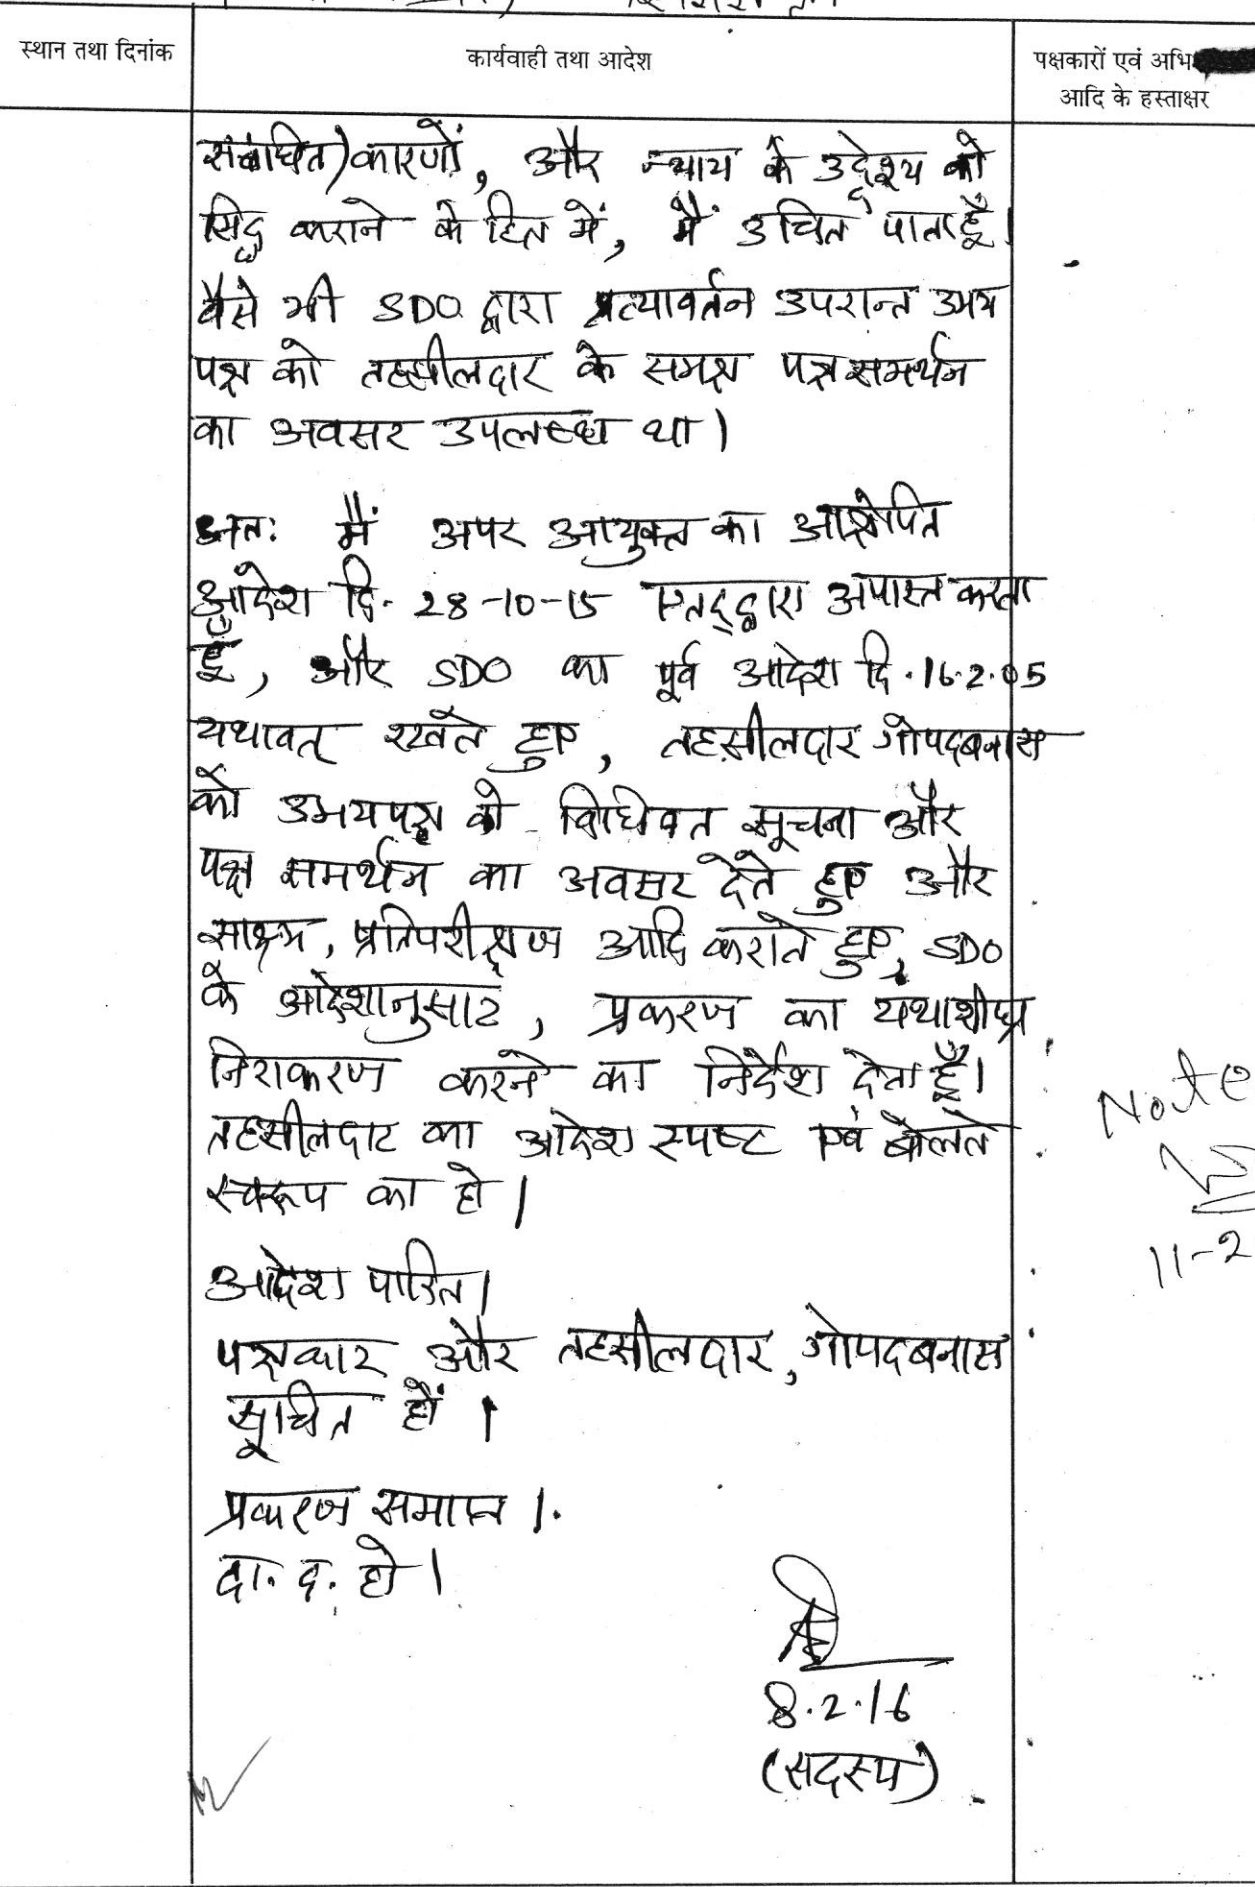 स्थान तथा दिनांक
कार्यवाही तथा आदेश
पक्षकारों एवं अभि
आदि के हस्ताक्षर
संबंधित) कारणों, और न्याय के उद्देश्य को
सिद्ध कराने के हित में, मैं उचित पाता हूँ।
वैसे भी SDO द्वारा प्रत्यावर्तन उपरान्त उभय
पक्ष को तहसीलदार के समक्ष पक्ष समर्थन
का अवसर उपलब्ध था।
अतः मैं अपर आयुक्त का आक्षेपित
आदेश दि. 28-10-15 एतद्द्वारा अपास्त करता
हूँ, और SDO का पूर्व आदेश दि. 16.2.05
यथावत् रखते हुए, तहसीलदार गोपदबनास
को उभयपक्ष को विधिवत सूचना और
पक्ष समर्थन का अवसर देते हुए और
साक्ष्य, प्रतिपरीक्षण आदि कराते हुए, SDO
के आदेशानुसार, प्रकरण का यथाशीघ्र
निराकरण करने का निर्देश देता हूँ।
तहसीलदार का आदेश स्पष्ट एवं बोलते
स्वरूप का हो।
आदेश पारित।
पक्षकार और तहसीलदार, गोपदबनास
सूचित हों।
प्रकरण समाप्त।
दा. द. हो।
8.2.16
(सदस्य)
Note
11-2